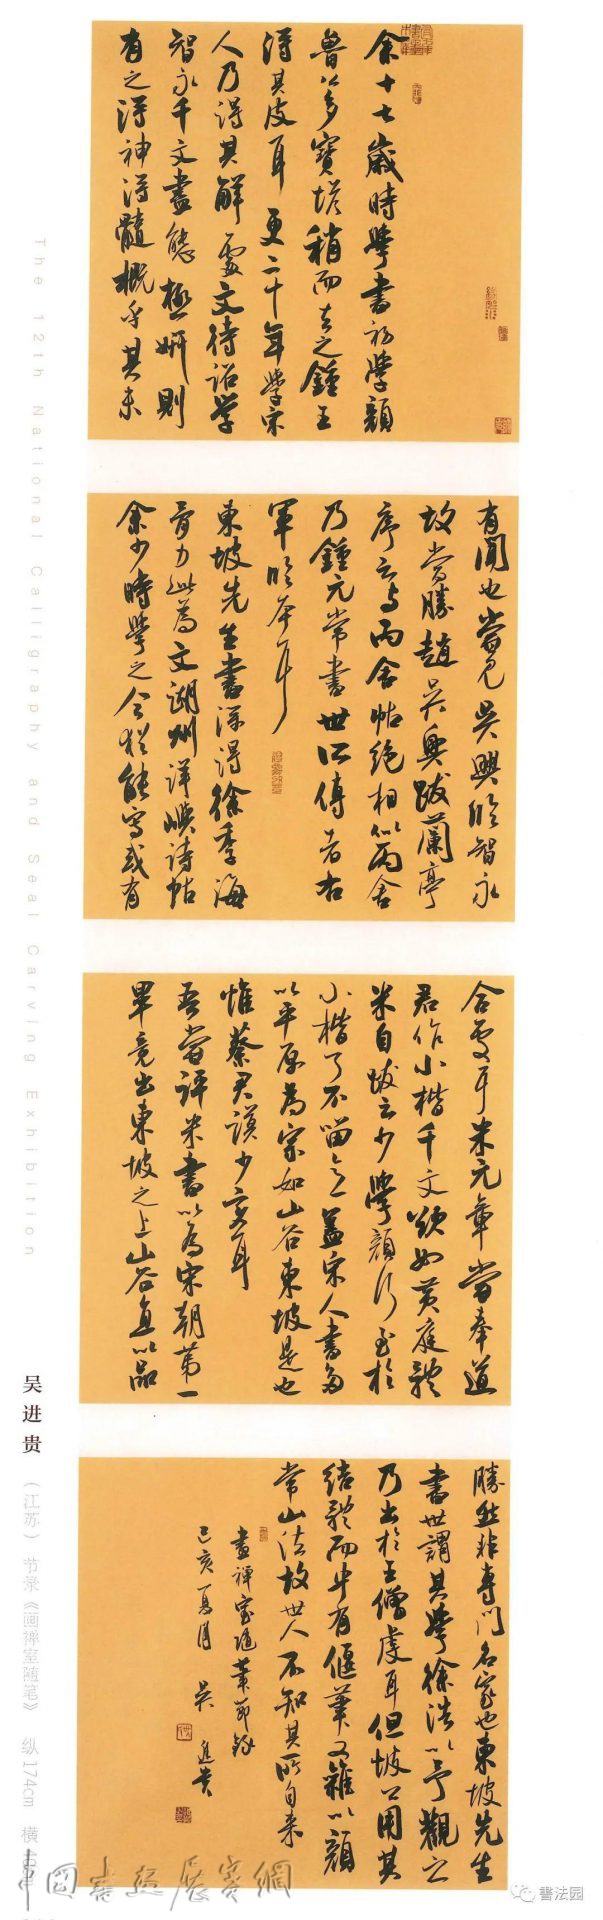 余十七岁時學書初學顔
魯公多寶塔稍而去之鍾王
得其皮耳更二十年學宋
人乃得其解處文待诏学
智永千文盡態極妍則
有之得神得髓概乎其未
有聞也嘗見吴興臨智永
故當勝趙吴興跋蘭亭
序云与丙舍帖绝相似丙舍
乃鍾元常書世所傳者右
軍臨本耳
東坡先生書深得徐季海
骨力此爲文湖州洋嶼诗帖
余少時學之今猶能寫或有
合處耳米元章嘗奉道
君作小楷千文欲如黄庭體
米自跋云少學顔行至於
小楷了不留意盖宋人書多
以平原為宗如山谷東坡是也
惟蔡君谟少变耳
吾嘗評米書以爲宋朝第一
畢竟出東坡之上山谷直以品
勝然非專門名家也東坡先生
書世謂其學徐浩以予觀之
乃出於王僧虔耳但坡公用其
結體而中有偃筆又雜以顔
常山法故世人不知其所自来
畫禪室随筆節録
己亥夏月 吴進貴
The 12th National Calligraphy and Seal Carving Exhibition
吴进贵 （江苏） 节录《画禅室随笔》 纵174cm 横
中國書法展賽網
書法园